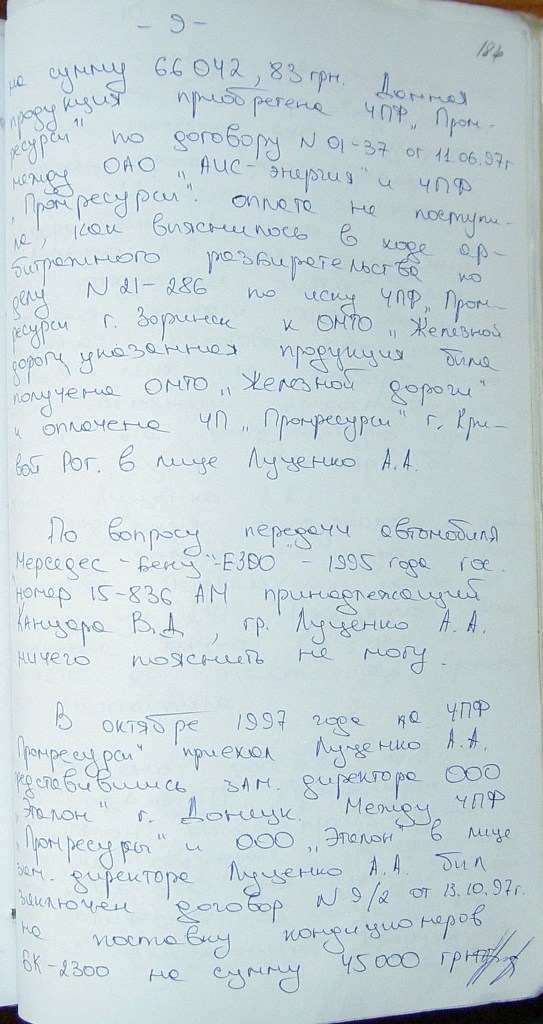 - 9 -
184
на сумму 66042, 83 грн. Данная
продукция приобретена ЧПФ „Пром-
ресурси" по договору N 01-37 от 11.06.97г
между ОАО „АИС-энергия" и ЧПФ
„Промресурси". оплата не поступи-
ла, как вияснилось в ходе ар-
битражного разбирательства по
делу N 21-286 по иску ЧПФ „Пром-
ресурси г. Зоринск к ОМТО „Железной
дороги, указанная продукция била
получена ОМТО „Железной дороги"
и оплачена ЧП „Промресурси" г. Кри-
вой Рог. в лице Луценко А.А.
По вопросу передачи автомобиля
Мерседес-Бенц"-Е300 - 1995 года гос.
номер 15-836 АМ принадлежащий
Канцара В.Д, гр. Луценко А.А.
ничего пояснить не могу.
В октябре 1997 года на ЧПФ
Промресурси" приехал Луценко А.А.
редставившись зам. директора ООО
„Эталон" г. Донецк. Между ЧПФ
„Промресуры" и ООО „Эталон" в лице
зам. директора Луценко А.А. бил
заключен договор N 9/2 от 13.10.97г.
на поставку кондиционеров
БК-2300 на сумму 45000 грн